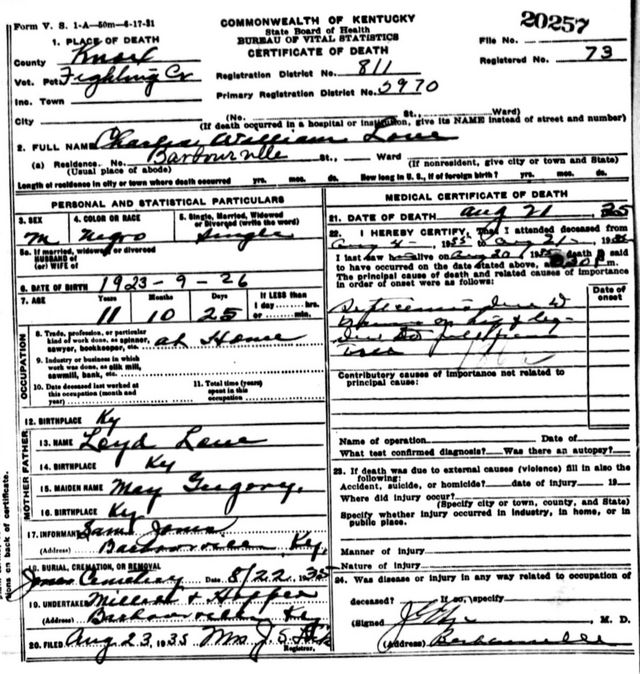 Form V. S. 1-A—50m—6-17-31
COMMONWEALTH OF KENTUCKY
State Board of Health
BUREAU OF VITAL STATISTICS
CERTIFICATE OF DEATH
20257
File No.
Registered No. 73
1. PLACE OF DEATH
County Knox
Vot. Pct. Fighting Cr
Inc. Town
City
Registration District No. 811
Primary Registration District No. 5970
(No. St., Ward)
(If death occurred in a hospital or institution, give its NAME instead of street and number)
2. FULL NAME Charles William Lowe
(a) Residence. No. Barbourville St., Ward
(Usual place of abode) (If nonresident, give city or town and State)
Length of residence in city or town where death occurred yrs. mos. ds. How long in U. S., if of foreign birth? yrs. mos. ds.
PERSONAL AND STATISTICAL PARTICULARS
3. SEX M
4. COLOR OR RACE Negro
5. Single, Married, Widowed or Divorced (write the word) Single
5a. If married, widowed or divorced
HUSBAND of
(or) WIFE of
6. DATE OF BIRTH 1923-9-26
7. AGE Years Months Days If LESS than
1 day hrs.
or min.
11 10 25
OCCUPATION
8. Trade, profession, or particular kind of work done, as spinner, sawyer, bookkeeper, etc. at Home
9. Industry or business in which work was done, as silk mill, sawmill, bank, etc.
10. Date deceased last worked at this occupation (month and year)
11. Total time (years) spent in this occupation
12. BIRTHPLACE Ky
FATHER
13. NAME Loyd Lowe
14. BIRTHPLACE Ky
MOTHER
15. MAIDEN NAME May Gregory
16. BIRTHPLACE Ky
17. INFORMANT Sam Jones
(Address) Barbourville Ky.
18. BURIAL, CREMATION, OR REMOVAL
Jones Cemetery Date 8/22 1935
19. UNDERTAKER Hopper
(Address) Barbourville Ky
20. FILED Aug 23, 1935 Mrs J. S.
Registrar.
MEDICAL CERTIFICATE OF DEATH
21. DATE OF DEATH Aug 21 35
22. I HEREBY CERTIFY, That I attended deceased from
Aug 4- 1935 to Aug 21- 1935
I last saw h alive on Aug 20 1935 death is said
to have occurred on the date stated above, at m.
The principal cause of death and related causes of importance in order of onset were as follows:
Date of onset
Septicemia Due to
Contributory causes of importance not related to principal cause:
Name of operation Date of
What test confirmed diagnosis? Was there an autopsy?
23. If death was due to external causes (violence) fill in also the following:
Accident, suicide, or homicide? date of injury 19
Where did injury occur?
(Specify city or town, county, and State)
Specify whether injury occurred in industry, in home, or in public place.
Manner of injury
Nature of injury
24. Was disease or injury in any way related to occupation of
deceased? If so, specify
(Signed) M. D.
(Address) Barbourville
sions on back of certificate.